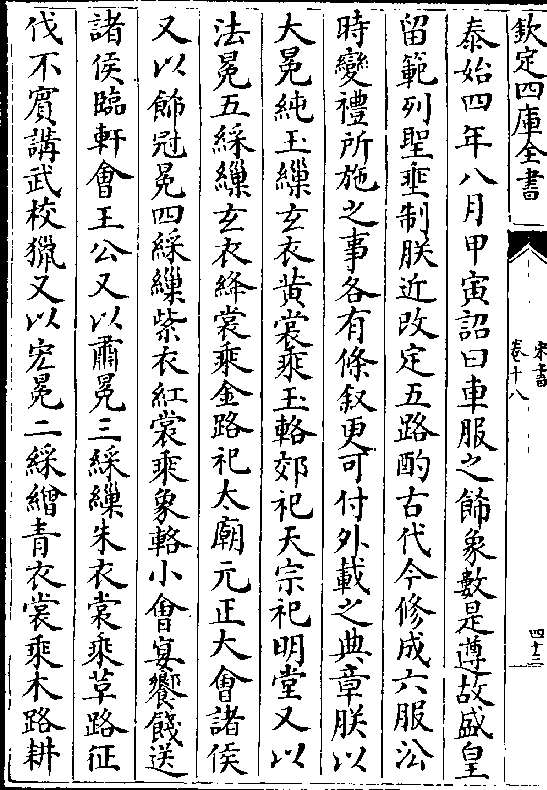 欽定四庫全書
宋書
卷十八
四十三
泰始四年八月甲寅詔曰車服之飾象數是遵故盛皇
留範列聖垂制朕近改定五路酌古代今修成六服沿
時變禮所施之事各有條叙更可付外載之典章朕以
大冕純玉繅玄衣黃裳乘玉輅郊祀天宗祀明堂又以
法冕五綵繅玄衣絳裳乘金路祀太廟元正大會諸侯
又以飾冠冕四綵繅紫衣紅裳乘象輅小會宴饗餞送
諸侯臨軒會王公又以肅冕三綵繅朱衣裳乘草路征
伐不賓講武校獵又以宏冕二綵繒青衣裳乘木路耕